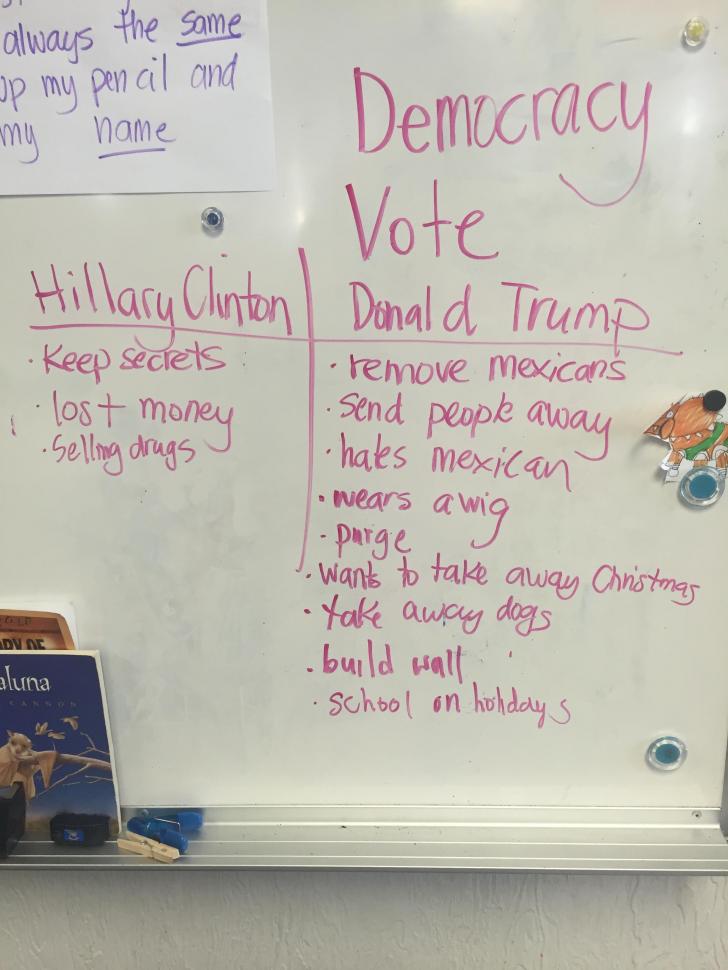 always the same
up my pencil and
my name
Democracy
Vote
Hillary Clinton
• Keep secrets
• lost money
• Selling drugs
Donald Trump
• remove mexicans
• send people away
• hates mexican
• wears a wig
• purge
• wants to take away Christmas
• take away dogs
• build wall
• school on holidays
aluna
CANNON